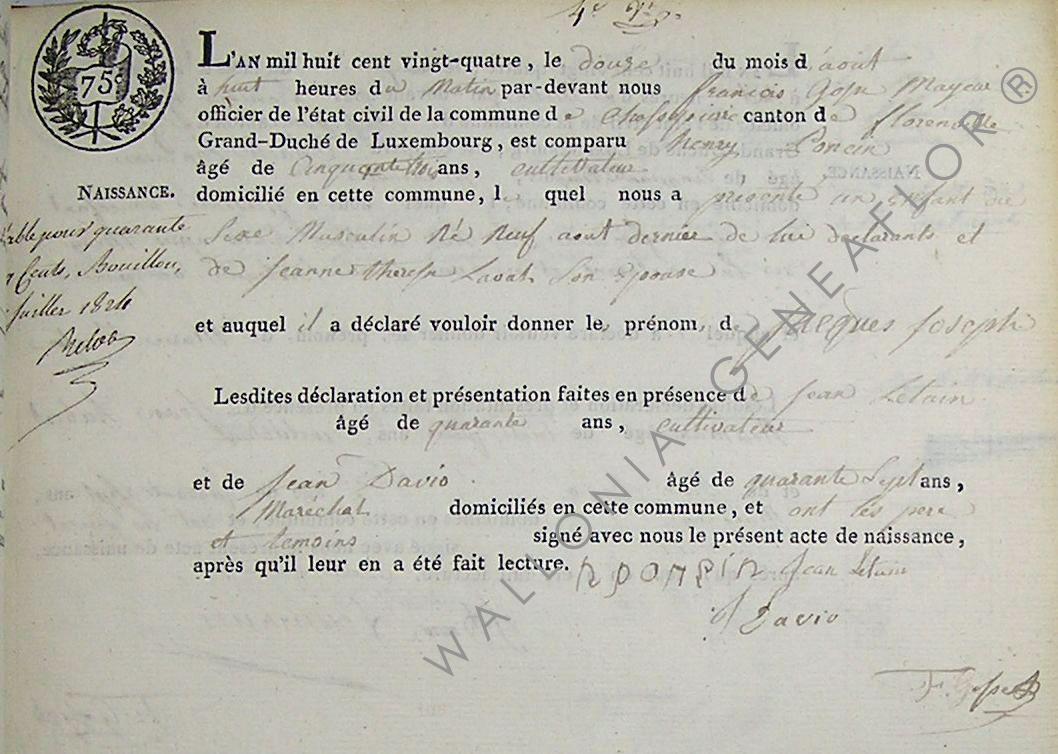 75 c
L'AN mil huit cent vingt-quatre, le douze du mois d'août
à huit heures du Matin par-devant nous françois Mayeur
officier de l'état civil de la commune de Chassepierre canton de florenville
Grand-Duché de Luxembourg, est comparu henry Poncin
âgé de Cinquante trois ans, cultivateur
NAISSANCE.
domicilié en cette commune, le quel nous a présenté un enfant du
Sexe Masculin Né Neuf aout dernier de lui declarants et
de jeanne therese Laval Son Epouse
pour quarante
Cents, Bouillon,
juillet 1824
et auquel il a déclaré vouloir donner le prénom, de jacques joseph
Lesdites déclaration et présentation faites en présence de jean Letain
âgé de quarante ans, cultivateur
et de jean Davio âgé de quarante Sept ans,
Maréchal domiciliés en cette commune, et ont les pere
et temoins signé avec nous le présent acte de naissance,
après qu'il leur en a été fait lecture. H PONCIN jean letain
J Davio
WALLONIA GENEAFLOR ®